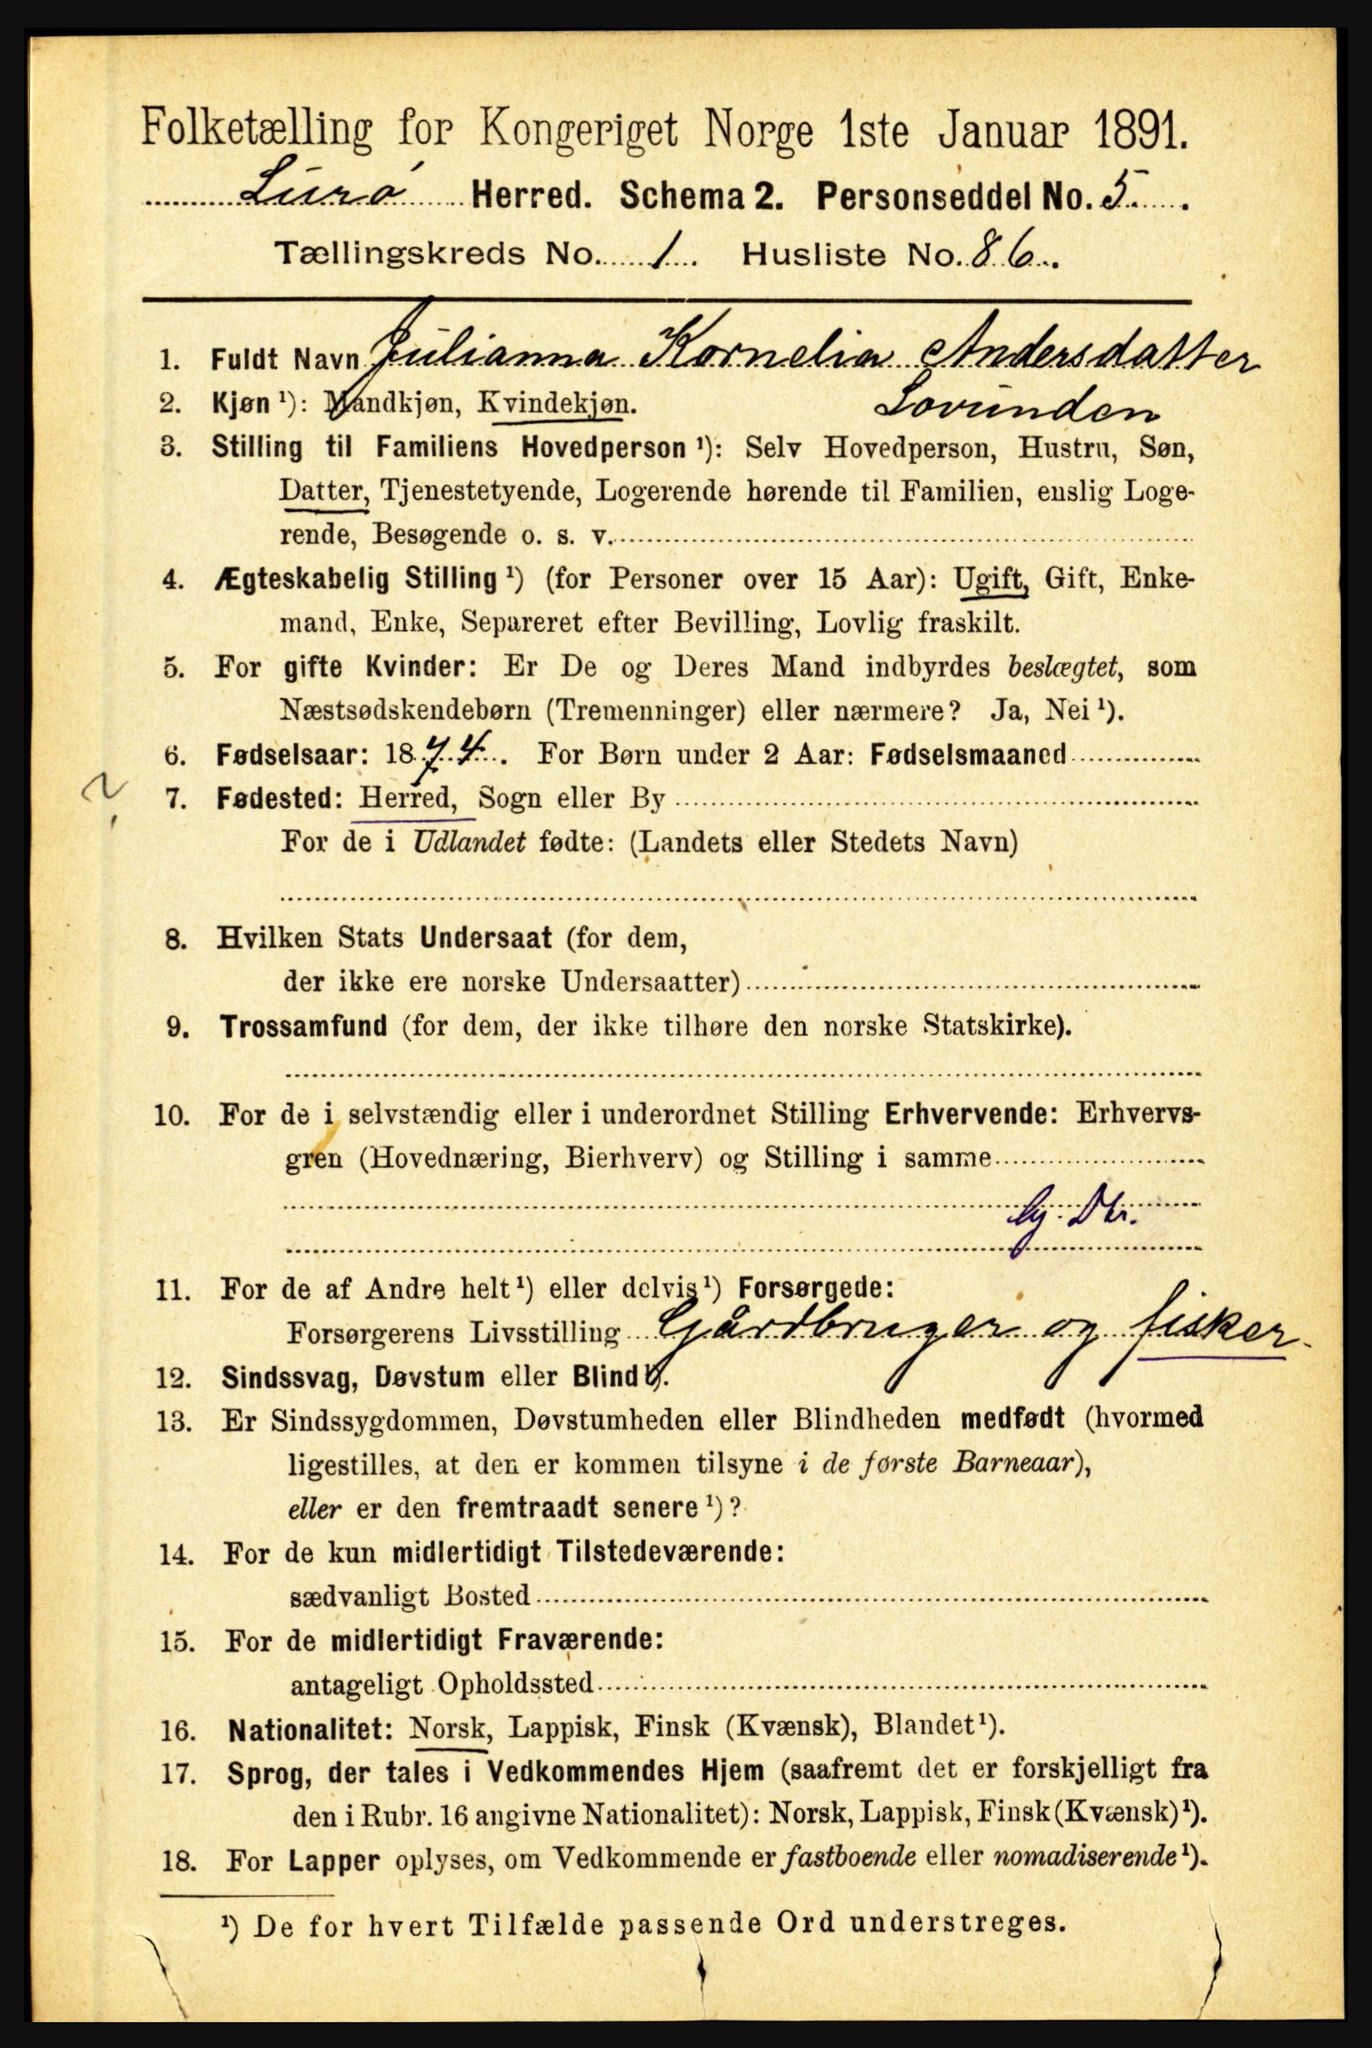 Folketælling for Kongeriget Norge 1ste Januar 1891.
Lurø Herred. Schema 2. Personseddel No. 5.
Tællingskreds No. 1. Husliste No. 86.
1. Fuldt Navn Julianna Kornelia Andersdatter
Lovunden
2. Kjøn ¹): Mandkjøn, Kvindekjøn.
3. Stilling til Familiens Hovedperson ¹): Selv Hovedperson, Hustru, Søn,
Datter, Tjenestetyende, Logerende hørende til Familien, enslig Loge-
rende, Besøgende o. s. v.
4. Ægteskabelig Stilling ¹) (for Personer over 15 Aar): Ugift, Gift, Enke-
mand, Enke, Separeret efter Bevilling, Lovlig fraskilt.
5. For gifte Kvinder: Er De og Deres Mand indbyrdes beslægtet, som
Næstsødskendebørn (Tremenninger) eller nærmere? Ja, Nei ¹).
6. Fødselsaar: 1874. For Børn under 2 Aar: Fødselsmaaned
7. Fødested: Herred, Sogn eller By
?
For de i Udlandet fødte: (Landets eller Stedets Navn)
8. Hvilken Stats Undersaat (for dem,
der ikke ere norske Undersaatter)
9. Trossamfund (for dem, der ikke tilhøre den norske Statskirke).
10. For de i selvstændig eller i underordnet Stilling Erhvervende: Erhvervs-
gren (Hovednæring, Bierhverv) og Stilling i samme
G. Dtr.
11. For de af Andre helt ¹) eller delvis ¹) Forsørgede:
Forsørgerens Livsstilling Gårdbruger og fisker.
12. Sindssvag, Døvstum eller Blind ¹).
13. Er Sindssygdommen, Døvstumheden eller Blindheden medfødt (hvormed
ligestilles, at den er kommen tilsyne i de første Barneaar),
eller er den fremtraadt senere ¹)?
14. For de kun midlertidigt Tilstedeværende:
sædvanligt Bosted
15. For de midlertidigt Fraværende:
antageligt Opholdssted
16. Nationalitet: Norsk, Lappisk, Finsk (Kvænsk), Blandet ¹).
17. Sprog, der tales i Vedkommendes Hjem (saafremt det er forskjelligt fra
den i Rubr. 16 angivne Nationalitet): Norsk, Lappisk, Finsk (Kvænsk) ¹).
18. For Lapper oplyses, om Vedkommende er fastboende eller nomadiserende ¹).
¹) De for hvert Tilfælde passende Ord understreges.